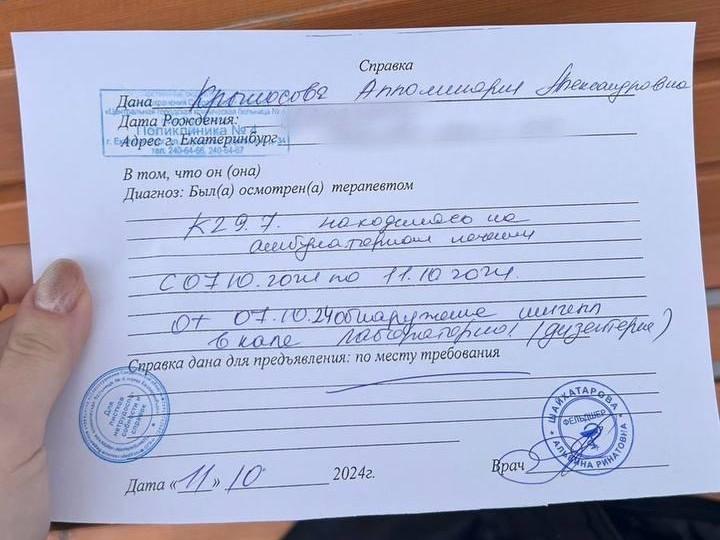 Справка
Дана Крымосова Апполинария Александровна
Дата Рождения:
Адрес г. Екатеринбург
Поликлиника № 4
тел. 240-64-66, 240-64-67
В том, что он (она)
Диагноз: Был(а) осмотрен(а) терапевтом
К29.7. находилась на
амбулаторном лечении
с 07.10.2024 по 11.10.2024.
От 07.10.24 обнаружение шигелл
в кале лабораторно! (дизентерия)
Справка дана для предъявления: по месту требования
Для листков нетрудоспособности и справок
ШАЙХАТАРОВА
ФЕЛЬДШЕР
АЛЬБИНА РИНАТОВНА
Врач
Дата «11» 10 2024г.